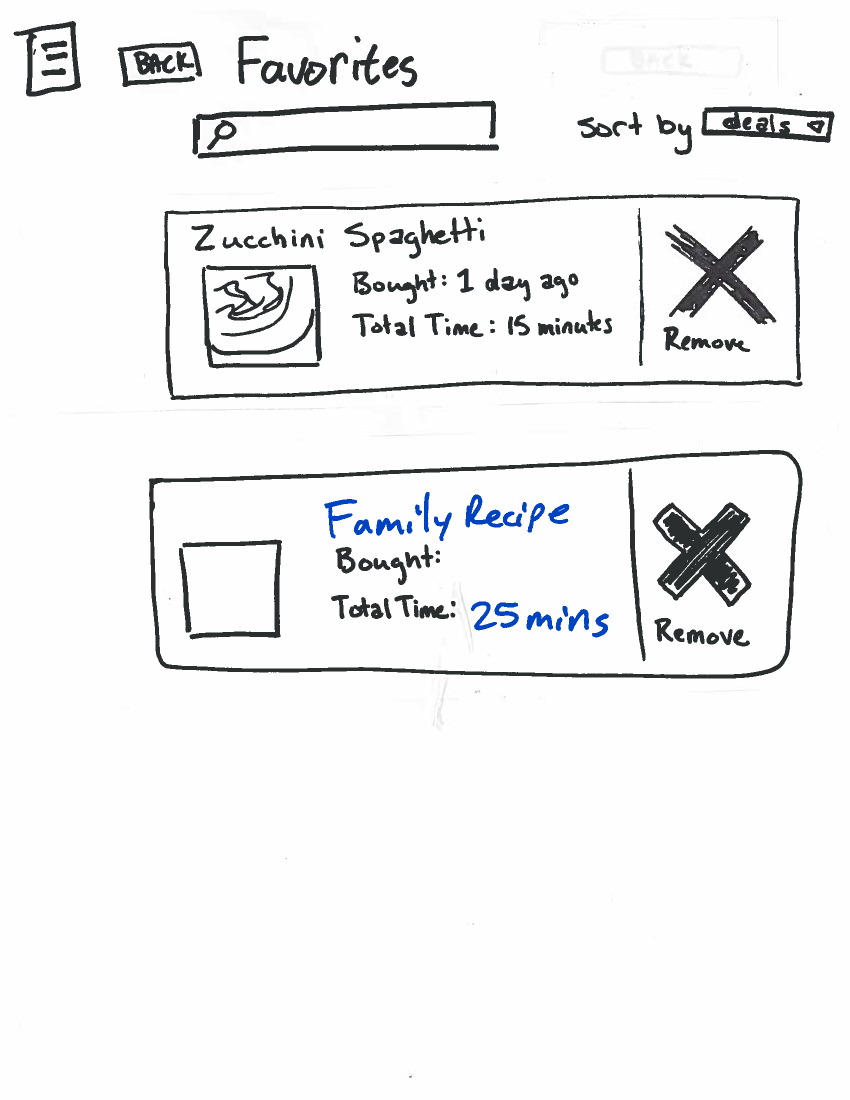 BACK Favorites
sort by deals
Zucchini Spaghetti
Bought: 1 day ago
Total Time: 15 minutes
Remove
Family Recipe
Bought:
Total Time: 25 mins
Remove